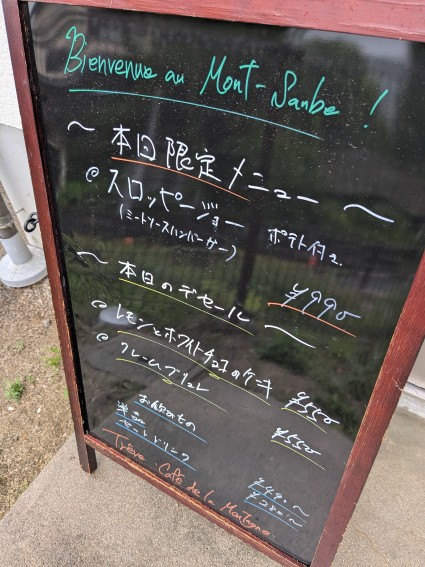 Bienvenue au Mont-Sanbe !
〜 本日限定メニュー 〜
◎ スロッピージョー
(ミートソースハンバーガー) ポテト付き
¥990
〜 本日のデセール 〜
◎ レモンとホワイトチョコのケーキ ¥550
◎ クレームブリュレ ¥550
お飲みもの
単品 ¥490〜
セットドリンク ¥280〜
Trêve Café de la Montagne